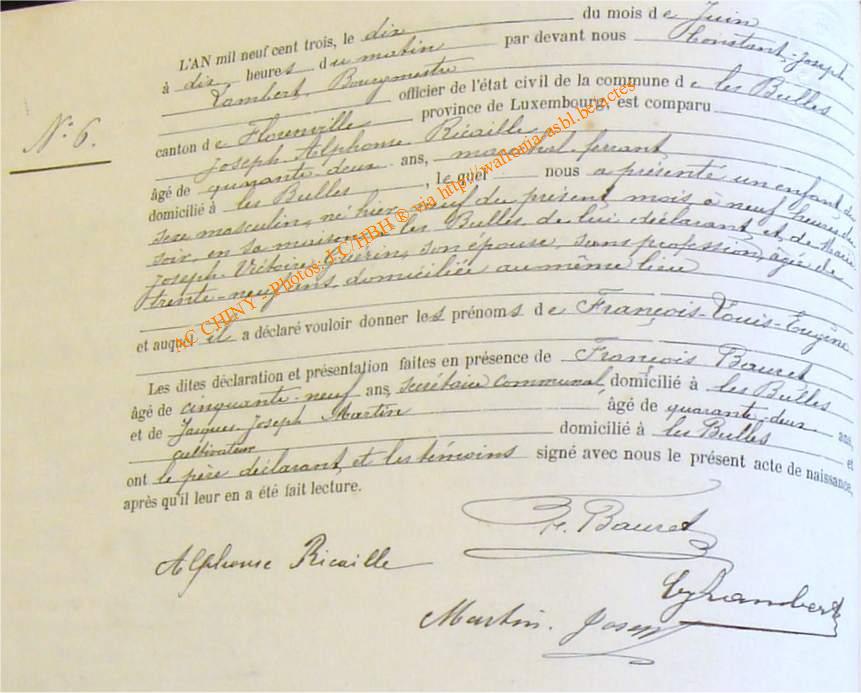 L'AN mil neuf cent trois, le dix du mois de Juin
à dix heures du matin par devant nous Constant-Joseph
Lambert, Bourgmestre
officier de l'état civil de la commune de les Bulles
canton de Florenville province de Luxembourg, est comparu
Joseph Alphonse Ricaille
âgé de quarante-deux ans, maréchal ferrant
domicilié à les Bulles, lequel nous a présenté un enfant, du
sexe masculin, né hier neuf du présent mois, à neuf heures du
soir, en sa maison à les Bulles, de lui déclarant et de Marie
Joseph Victoire Guérin, son épouse, sans profession, âgée de
trente-neuf ans domiciliée au même lieu
et auquel il a déclaré vouloir donner les prénoms de François-Louis-Eugène
Les dites déclaration et présentation faites en présence de François Bauret
âgé de cinquante-neuf ans, secrétaire communal, domicilié à les Bulles
et de Jacques-Joseph Martin âgé de quarante-deux ans,
cultivateur domicilié à les Bulles et
ont le père déclarant et les témoins signé avec nous le présent acte de naissance,
après qu'il leur en a été fait lecture.
N° 6.
F. Bauret
Alphonse Ricaille
Lambert
Martin. Joseph
AC CHINY - Photos: J.C/HBH ® via http://walfraria-asbl.be/actes